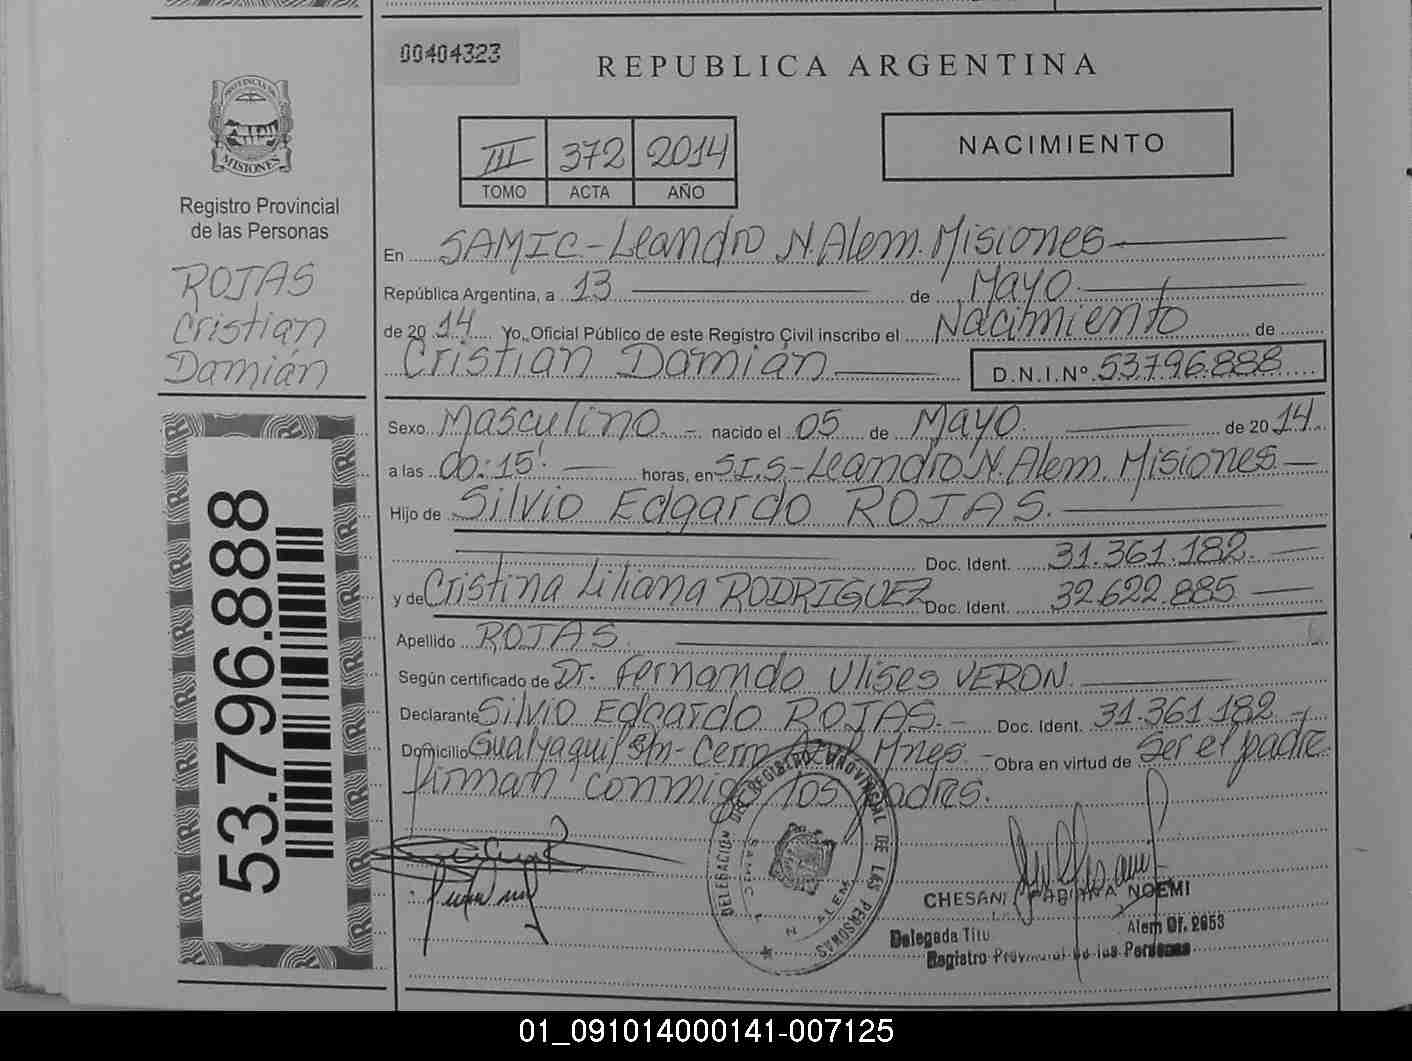 00404323
REPUBLICA ARGENTINA
PROVINCIA DE
MISIONES
Registro Provincial
de las Personas
ROJAS
Cristian
Damián
III 372 2014
TOMO ACTA AÑO
NACIMIENTO
En SAMIC-Leandro N. Alem. Misiones
República Argentina, a 13 de Mayo.
de 2014 Yo, Oficial Público de este Registro Civil inscribo el Nacimiento de
Cristian Damián D.N.I.Nº 53796.888
Sexo Masculino.- nacido el 05 de Mayo. de 2014.
a las 00:15'. horas, en S.I.S-Leandro N. Alem. Misiones
Hijo de Silvio Edgardo ROJAS.
Doc. Ident. 31.361.182.
y de Cristina Liliana RODRIGUEZ Doc. Ident. 32.622.885
Apellido ROJAS.
Según certificado de Dr. Fernando Ulises VERON.
Declarante Silvio Edgardo ROJAS.- Doc. Ident. 31.361.182-
Domicilio Gualyaquil s/n- Cerro Azul Mnes- Obra en virtud de Ser el padre
firman conmigo, los padres.
53.796.888
DELEGACION DEL REGISTRO PROVINCIAL DE LAS PERSONAS
SAMIC L. N. ALEM
CHESANI FABIANA NOEMI
Delegada Titu Alem Of. 2653
Registro Provincial de las Personas
01_091014000141-007125